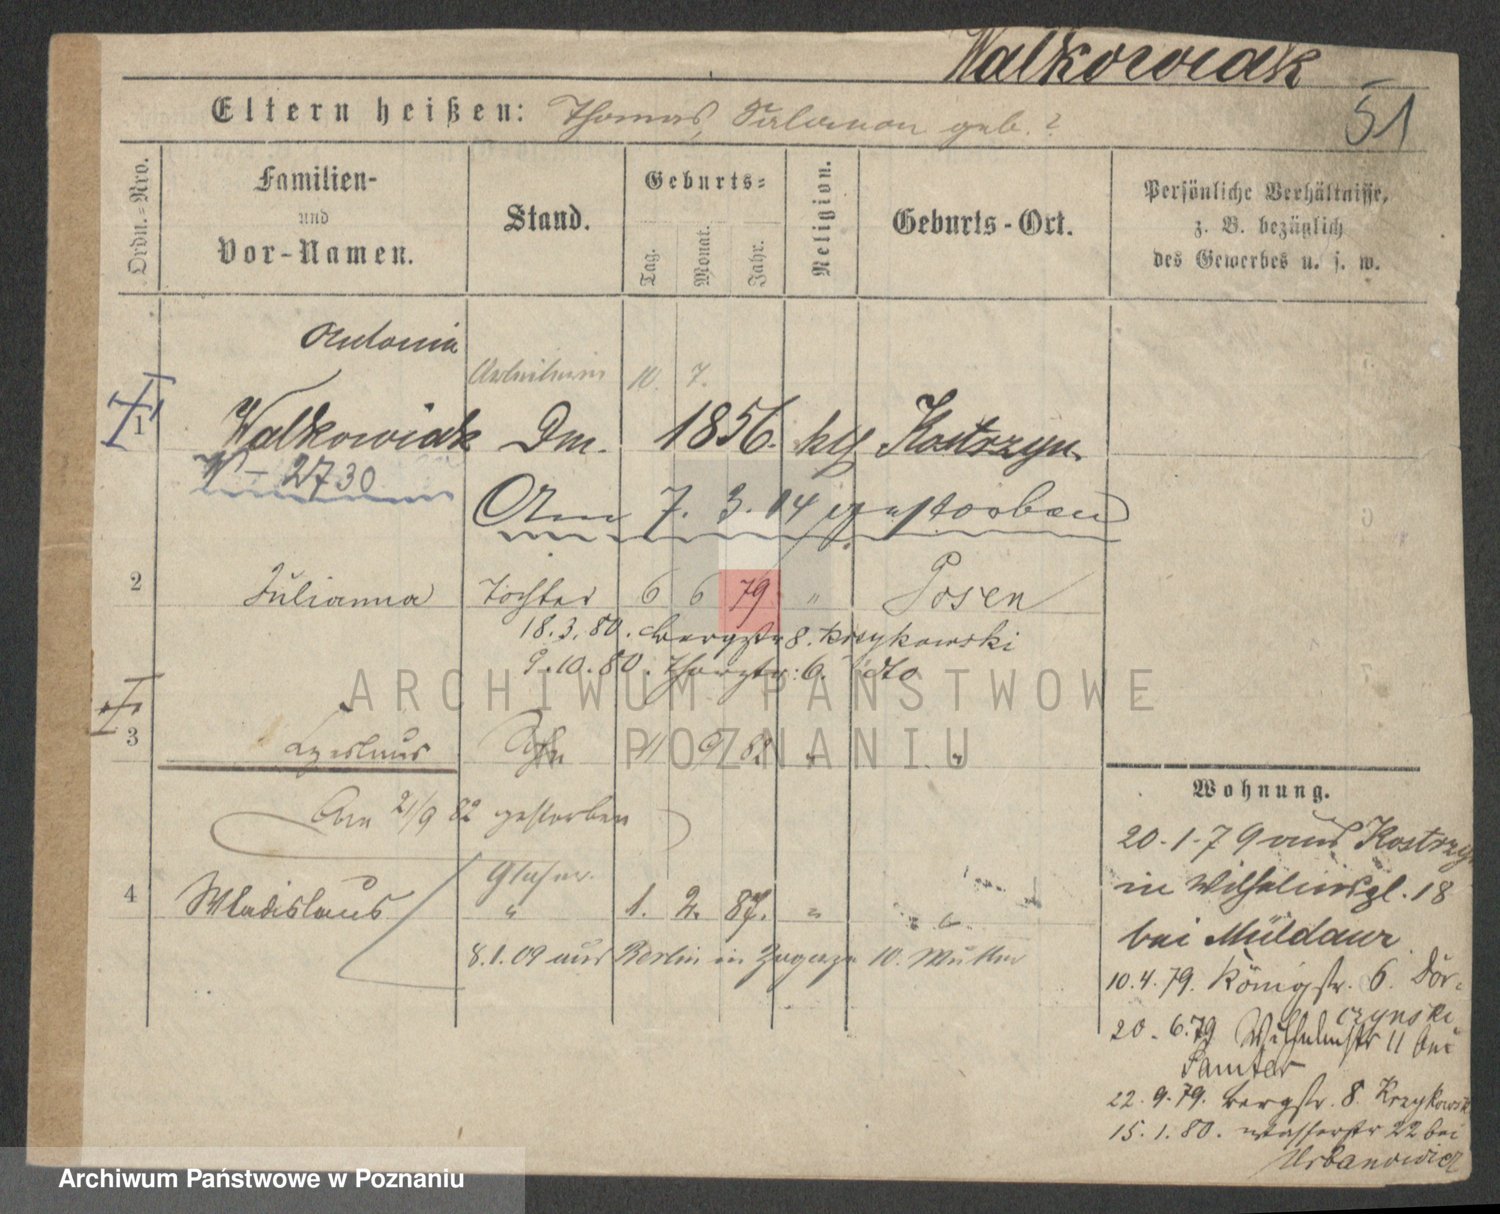 Walkowiak
51
Eltern heißen: Thomas, Salomon geb. ?
Ordn.=Nro.
Familien-
und
Vor-Namen.
Stand.
Geburts=
Tag.
Monat.
Jahr.
Religion.
Geburts-Ort.
Persönliche Verhältnisse,
z. B. bezüglich
des Gewerbes u. s. w.
Antonia
Arbeiterin 10. 7.
1 Walkowiak Dm. 1856. kth Kostrzyn.
W - 2730
Am 7. 3. 14 gestorben
2 Julianna Tochter 6 6 79 " Posen
18.3.80. Bergstr 8. Krzykowski
9.10.80. Thorstr: 6. dto
3 Czeslaus Sohn 11 9 82 " "
Am 21/9 82 gestorben
Glaser
4 Wladislaus " 1. 2. 87. " "
8.1.09 aus Berlin in 10. Mutter
Wohnung.
20-1-79 aus Kostrzyn
in Wilhelmspl. 18
bei Müldaur
10.4.79. Königstr. 6. Dör-
czynski
20.6.79 Wilhelmstr 11 bei
Samter
22.9.79. Bergstr. 8. Krzykowski
15.1.80. Wasserstr 22 bei
Urbanowicz
ARCHIWUM PAŃSTWOWE
W POZNANIU
Archiwum Państwowe w Poznaniu